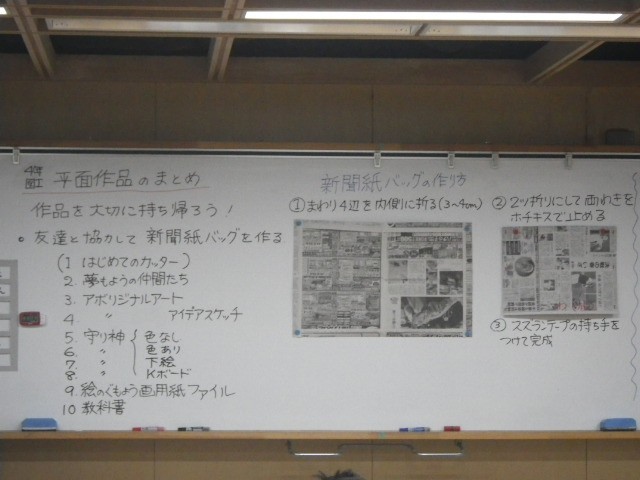 4年
図工
平面作品のまとめ
作品を大切に持ち帰ろう！
• 友達と協力して 新聞紙バッグを作る
(1 はじめてのカッター)
2. 夢もようの仲間たち
3. アボリジナルアート
4. 〃 アイデアスケッチ
5. 守り神 { 色なし
6. 〃 色あり
7. 〃 下絵
8. 〃 Kボード
9. 絵のぐもよう画用紙ファイル
10 教科書
新聞紙バッグの作り方
① まわり4辺を内側に折る(3~4cm)
② 2ツ折りにして両わきを
ホチキスで止める
③ スズランテープの持ち手を
つけて完成